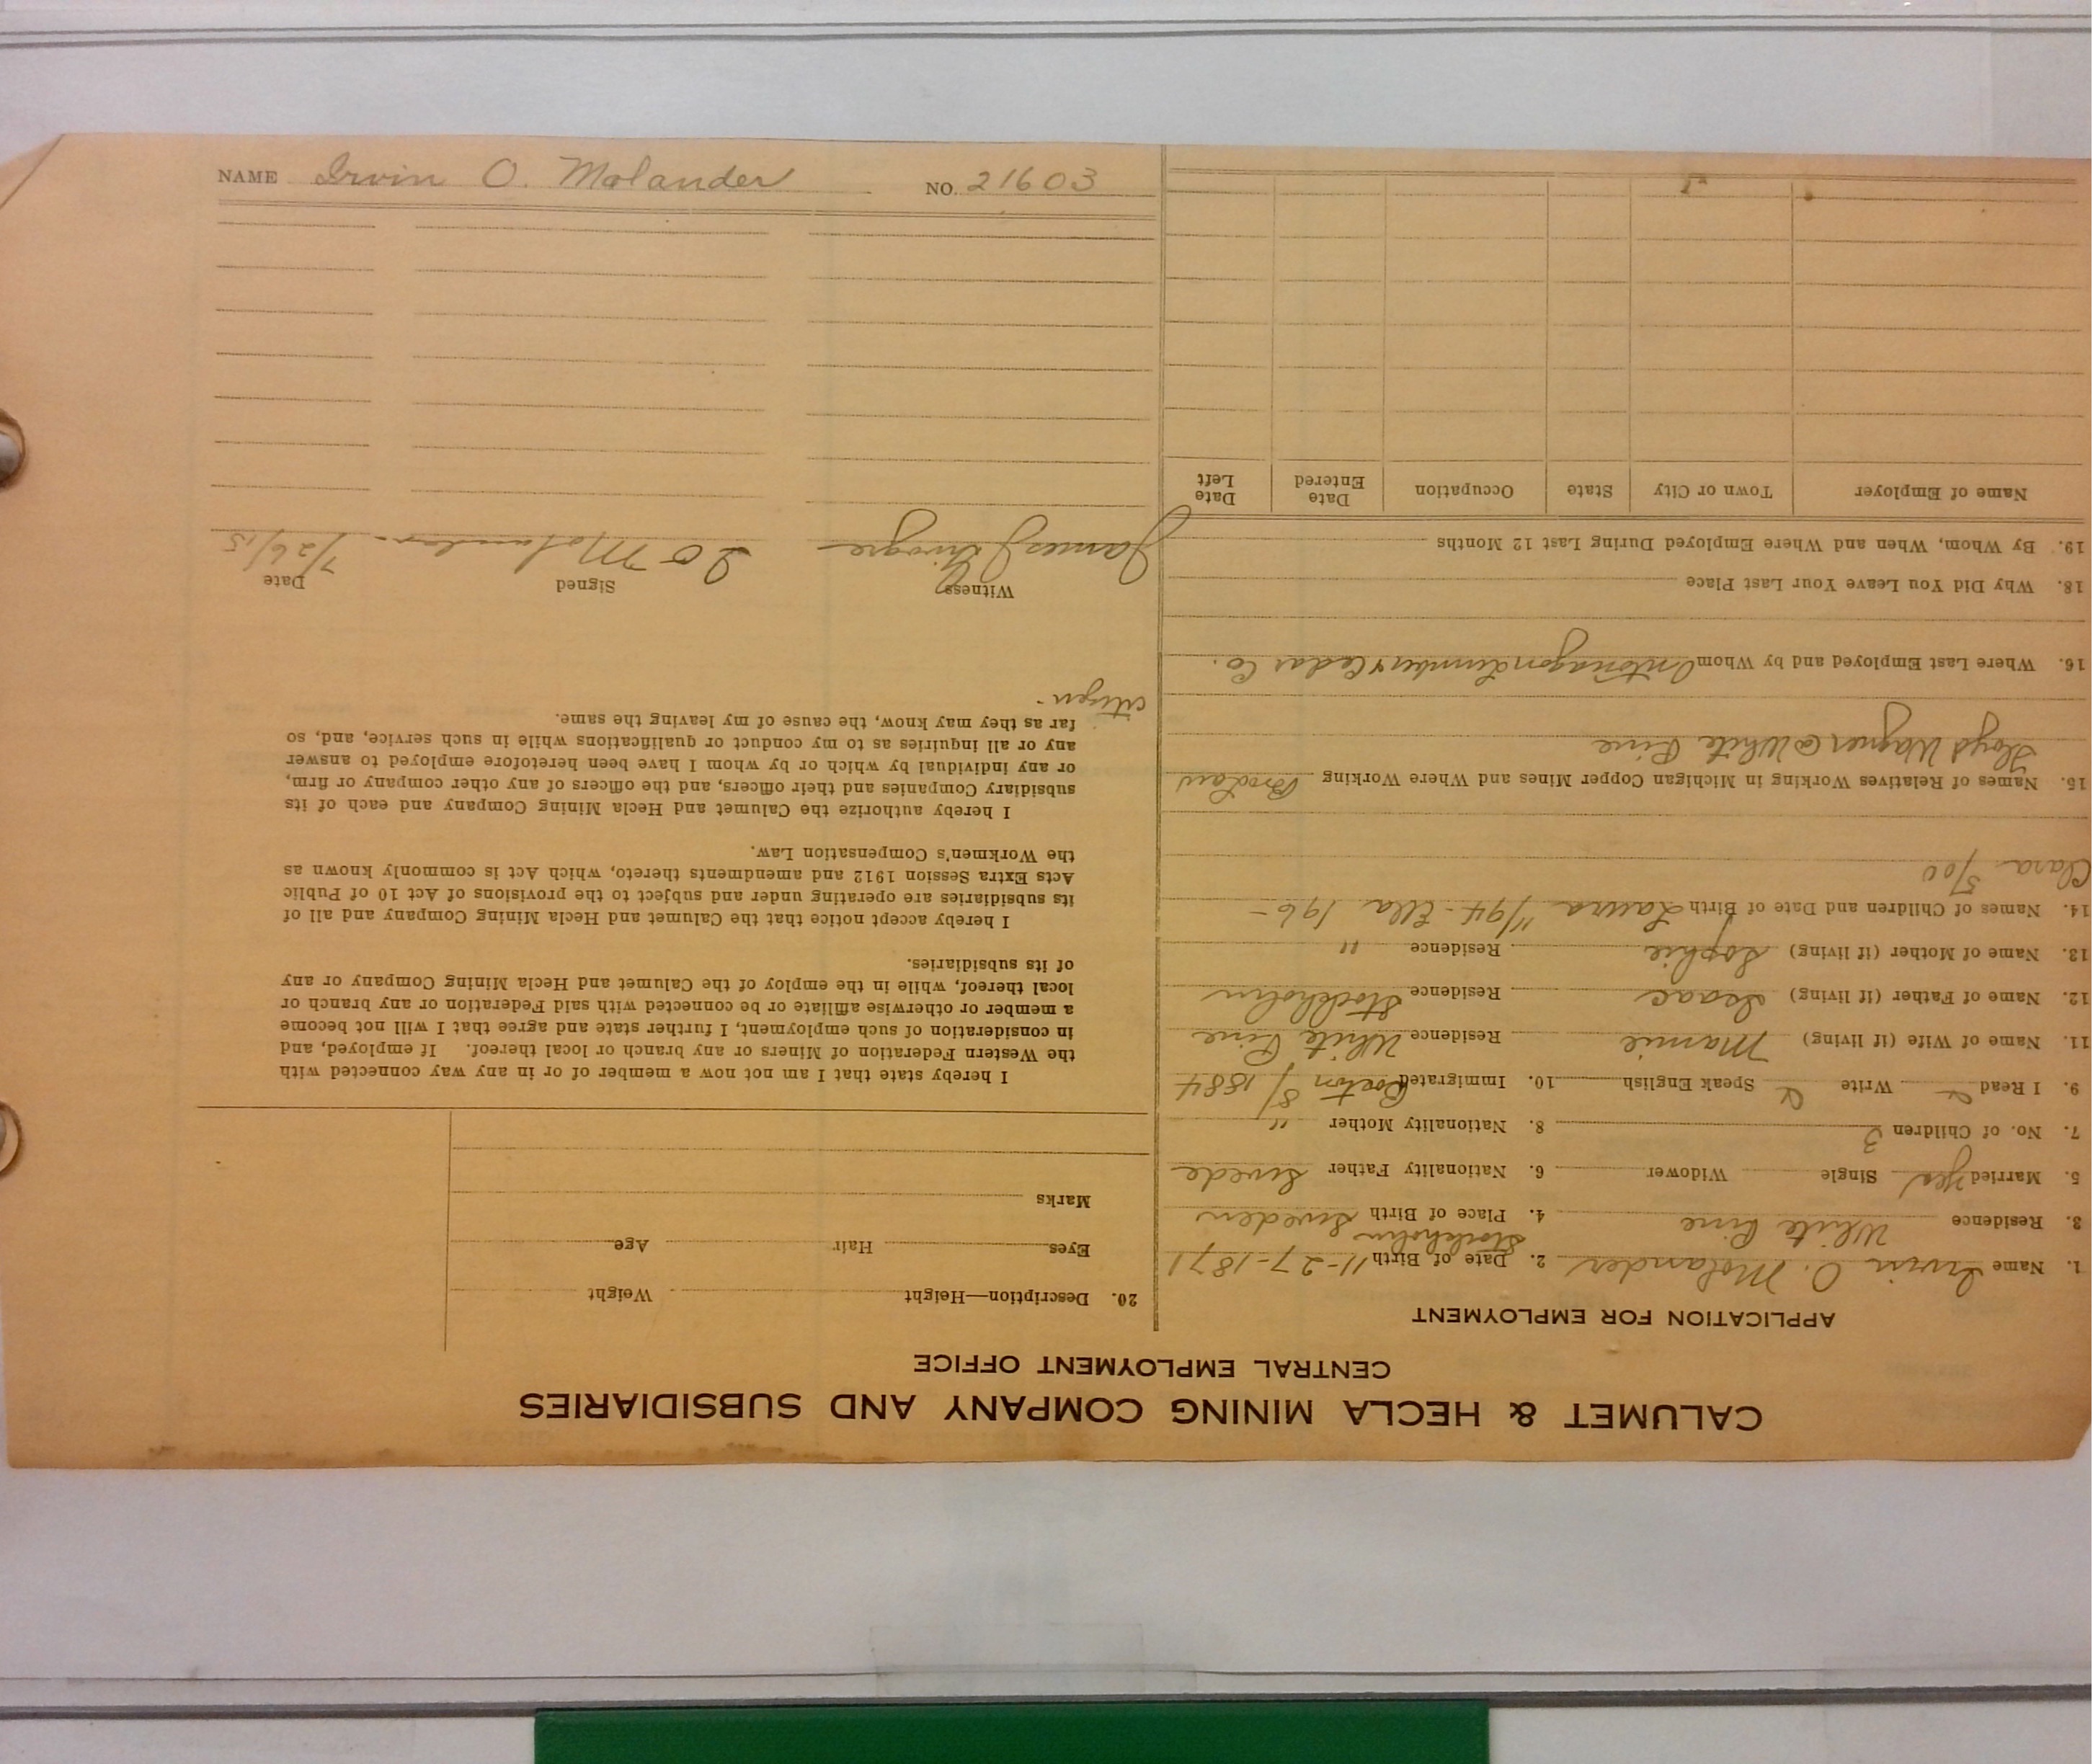 CALUMET & HECLA MINING COMPANY AND SUBSIDIARIES
CENTRAL EMPLOYMENT OFFICE
APPLICATION FOR EMPLOYMENT
1. Name Irvin O. Molander 2. Date of Birth 11-27-1871
3. Residence White Pine 4. Place of Birth Stockholm Sweden
5. Married Yes Single Widower 6. Nationality Father Swede
7. No. of Children 3 8. Nationality Mother "
9. I Read Write Speak English 10. Immigrated Boston 8/1884
11. Name of Wife (if living) Mamie Residence White Pine
12. Name of Father (if living) Isaac Residence Stockholm
13. Name of Mother (if living) Sophie Residence "
14. Names of Children and Date of Birth Laura 11/94- Ella 196-
Clara 5/00
15. Names of Relatives Working in Michigan Copper Mines and Where Working
Floyd Wagner @ White Pine
16. Where Last Employed and by Whom Ontonagon Lumber & Cedar Co.
18. Why Did You Leave Your Last Place
19. By Whom, When and Where Employed During Last 12 Months
Name of Employer Town or City State Occupation Date Entered Date Left
20. Description—Height Weight
Eyes Hair Age
Marks
I hereby state that I am not now a member of or in any way connected with
the Western Federation of Miners or any branch or local thereof. If employed, and
in consideration of such employment, I further state and agree that I will not become
a member or otherwise affiliate or be connected with said Federation or any branch or
local thereof, while in the employ of the Calumet and Hecla Mining Company or any
of its subsidiaries.
I hereby accept notice that the Calumet and Hecla Mining Company and all of
its subsidiaries are operating under and subject to the provisions of Act 10 of Public
Acts Extra Session 1912 and amendments thereto, which Act is commonly known as
the Workmen's Compensation Law.
I hereby authorize the Calumet and Hecla Mining Company and each of its
subsidiary Companies and their officers, and the officers of any other company or firm,
or any individual by which or by whom I have been heretofore employed to answer
any or all inquiries as to my conduct or qualifications while in such service, and, so
far as they may know, the cause of my leaving the same.
citizen-
Witness Signed Date
James I O Molander 7/26/15
NAME Irvin O. Molander NO. 21603